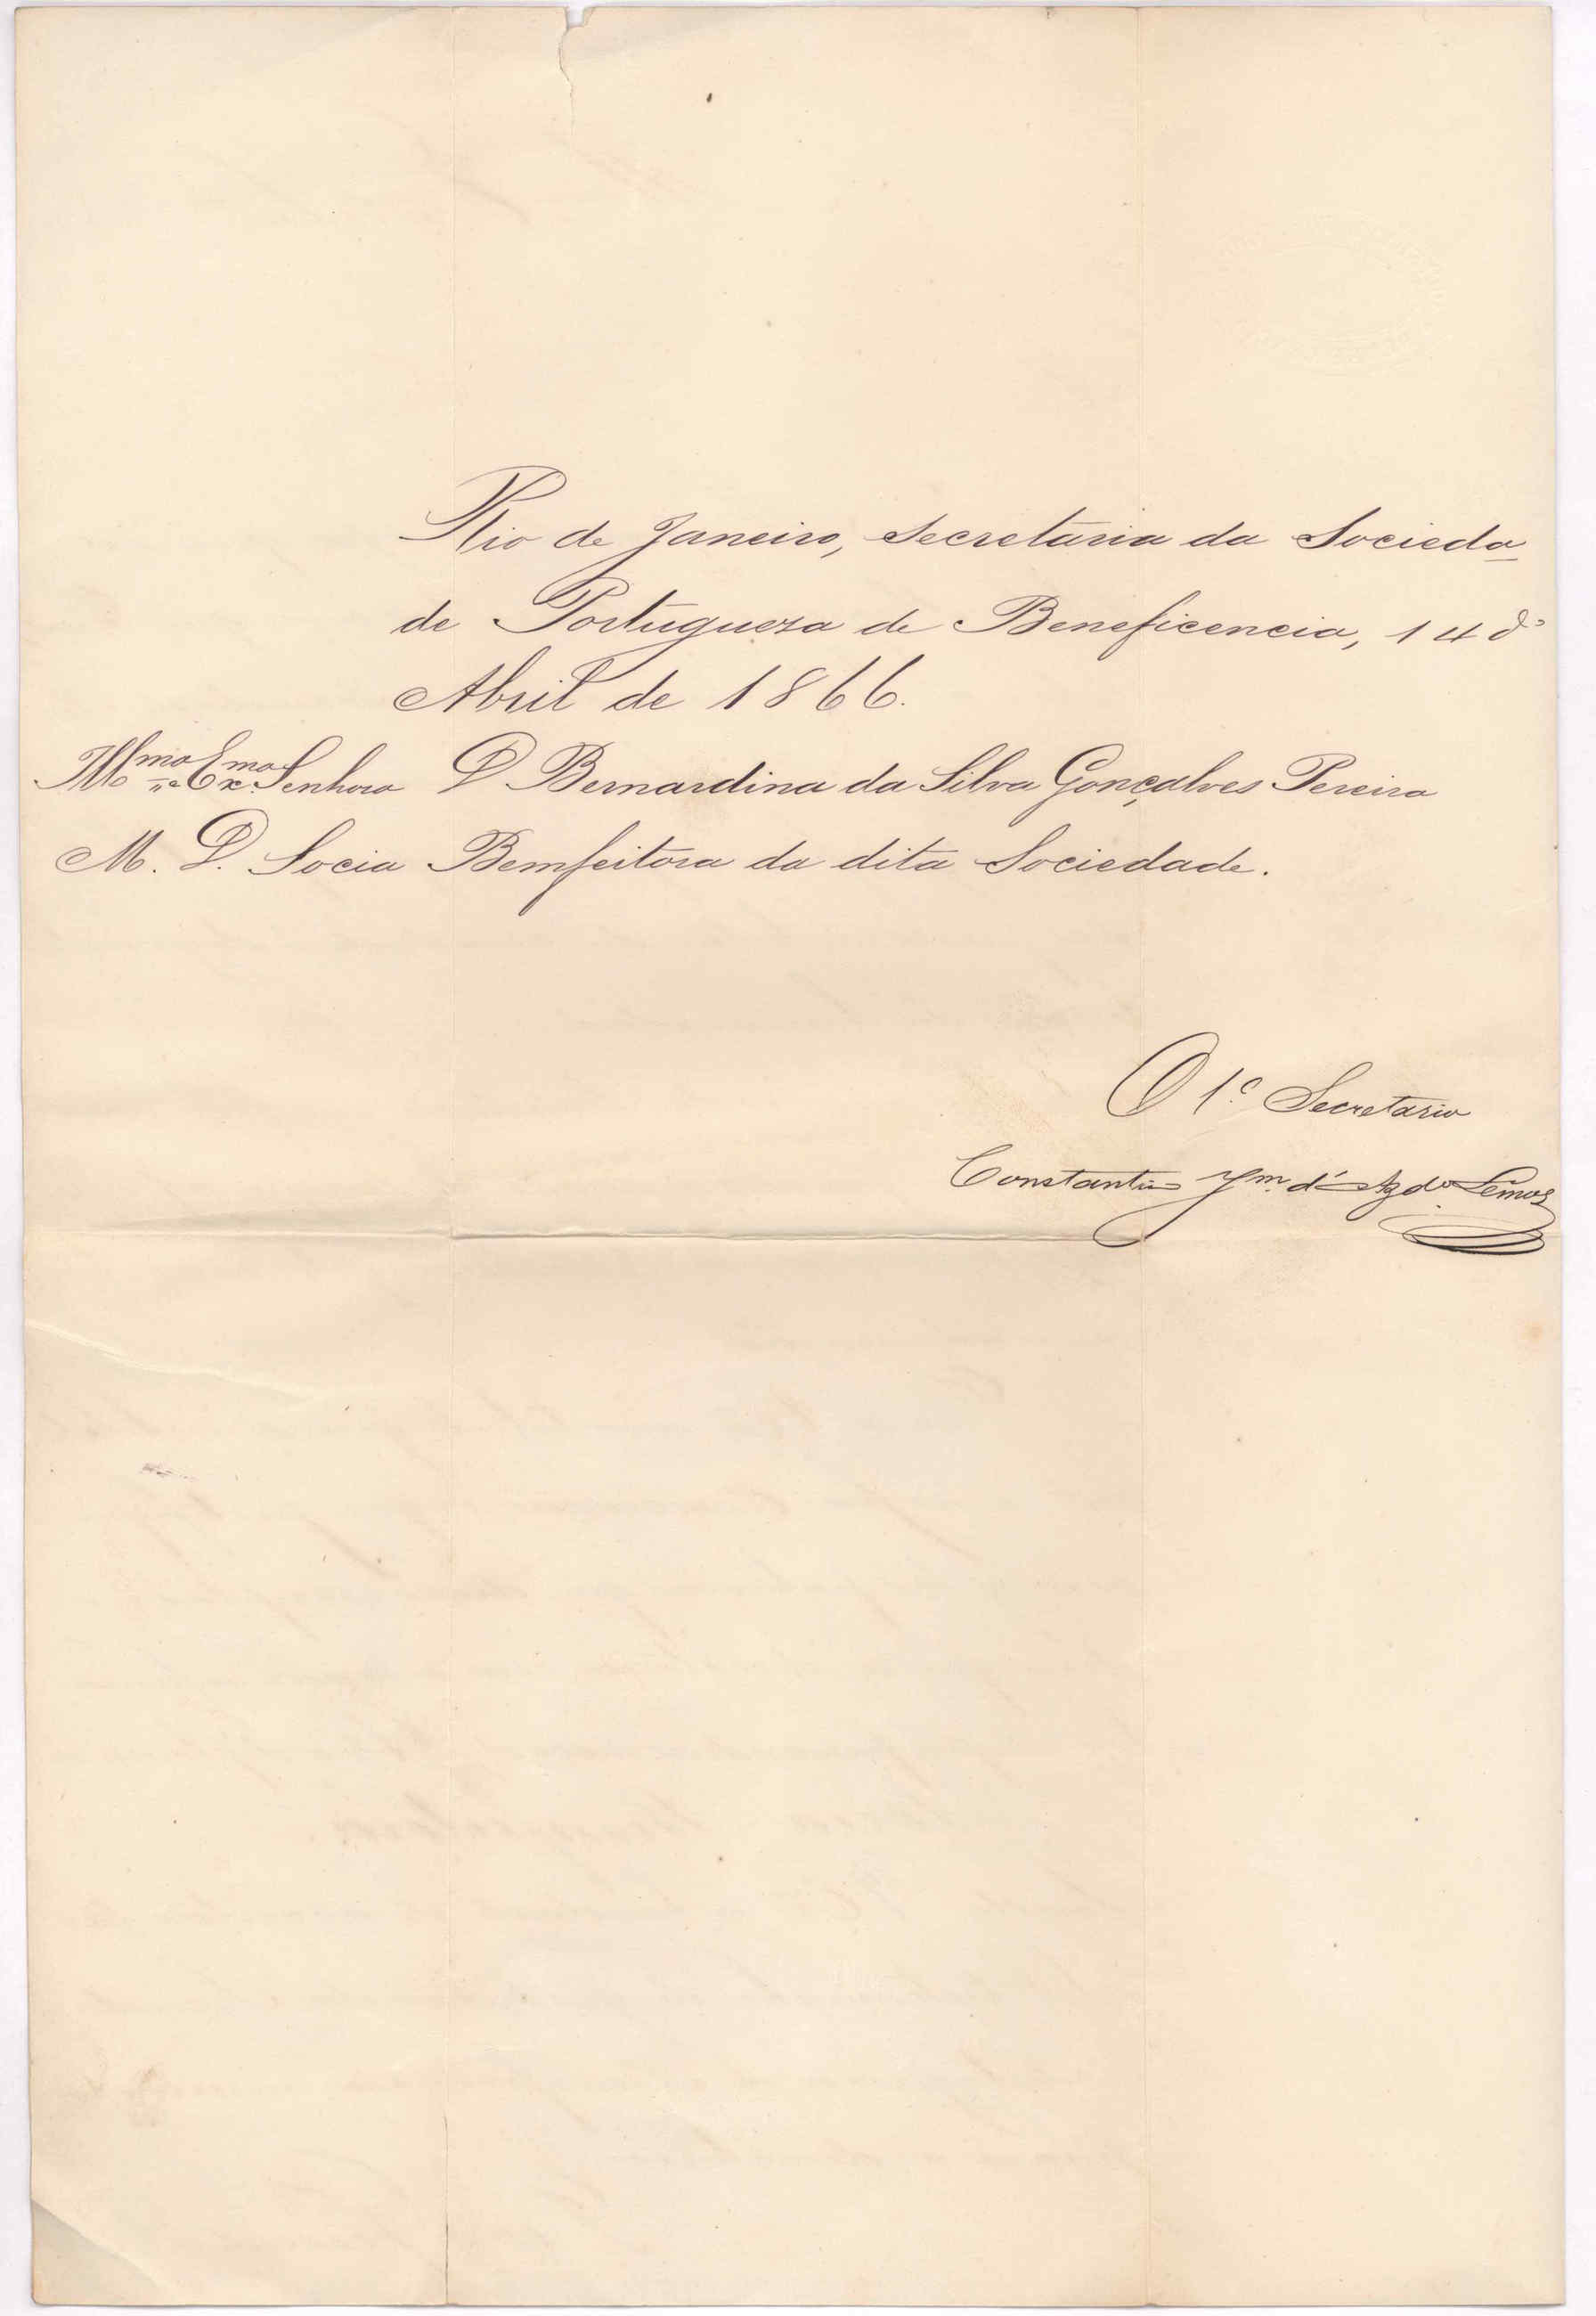 Rio de Janeiro, Secretaria da Socieda-
de Portugueza de Beneficencia, 14 de
Abril de 1866.
Ill.ma e Ex.ma Senhora D Bernardina da Silva Gonçalves Pereira
M. D. Socia Bemfeitora da dita Sociedade.
O 1.º Secretario
Constantino d'Azdo. Lemos